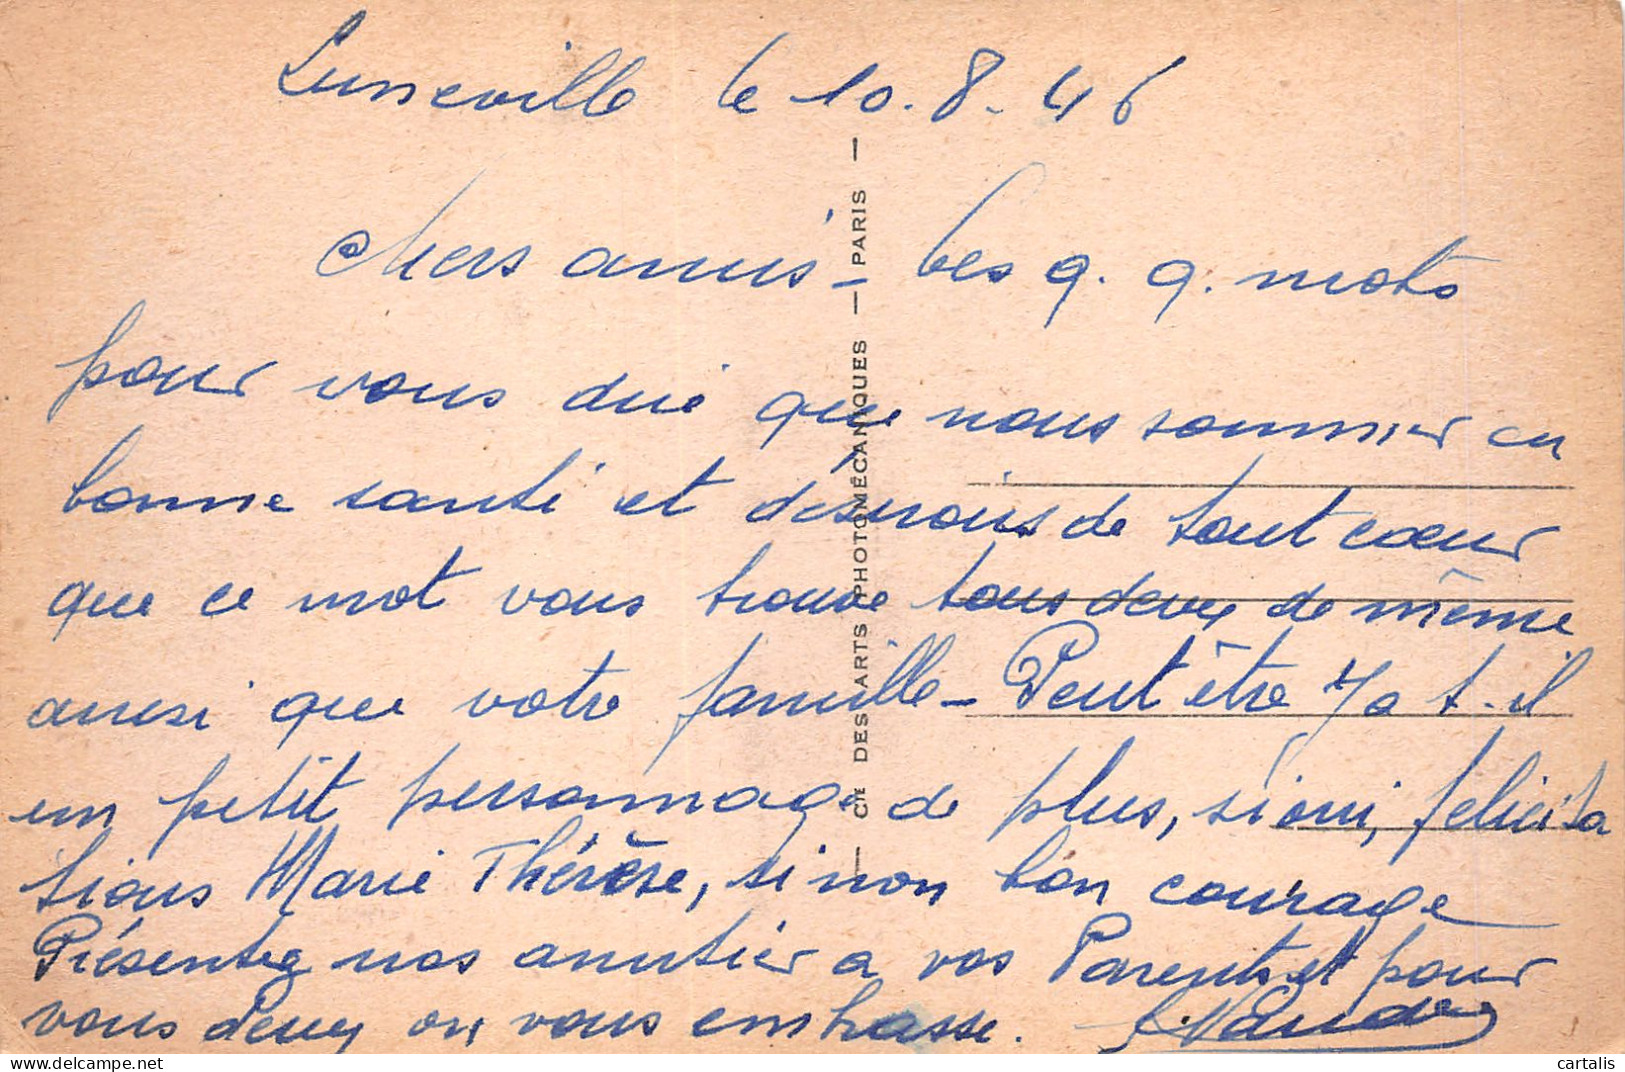 Luneville le 10.8.46
Chers amis - Ces q. q. mots
pour vous dire que nous sommes en
bonne santé et désirons de tout cœur
que ce mot vous trouve tous deux de même
aussi que votre famille - Peut être Y a t-il
un petit personnage de plus, si oui, felicita
tions Marie Thérèse, si non bon courage
Présentez nos amitiés a vos Parents et pour
vous deux on vous embrasse.
CIE DES ARTS PHOTOMÉCANIQUES — PARIS —
cartalis